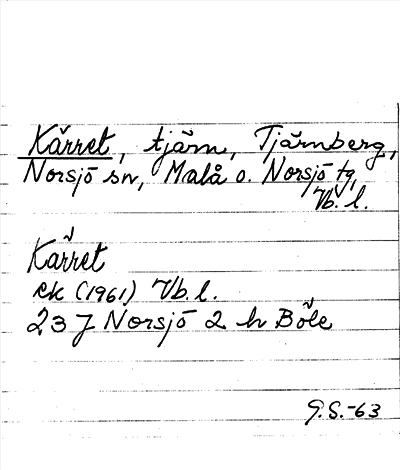 Kärret, tjärn, Tjärnberg,
Norsjö sn, Malå o. Norsjö tg,
Vb. l.
Kärret
ek (1961) Vb. l.
23 J Norsjö 2 h Böle
G.S.-63